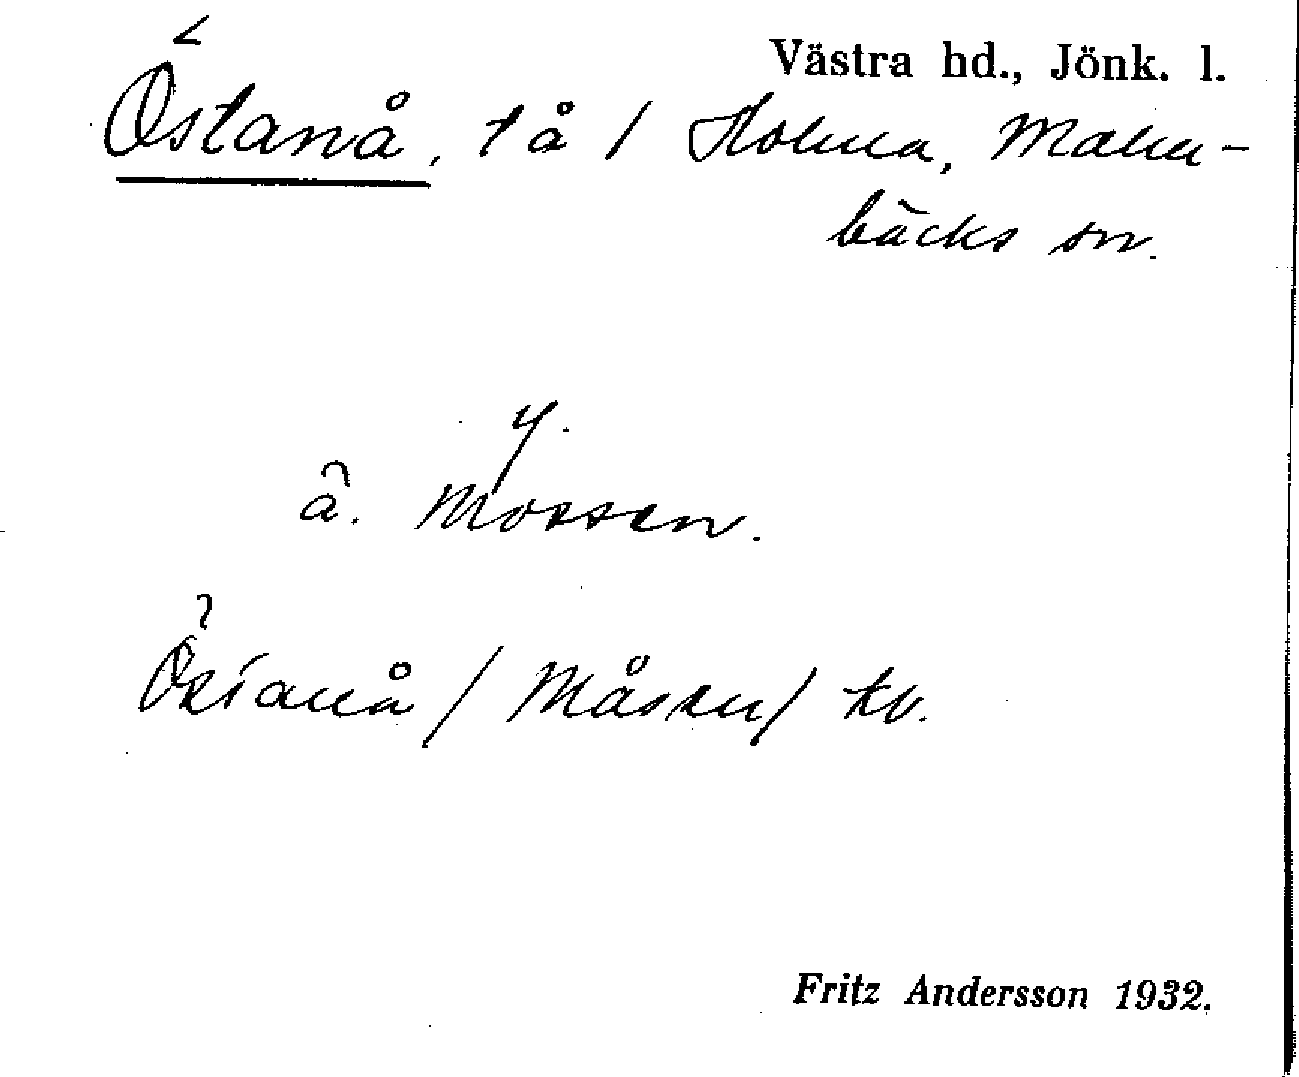 Västra hd., Jönk. l.
Östanå, tå / Holma, Malm-
bäcks sn.
y.
â. Mossen.
Östanå / Måsen / tv.
Fritz Andersson 1932.